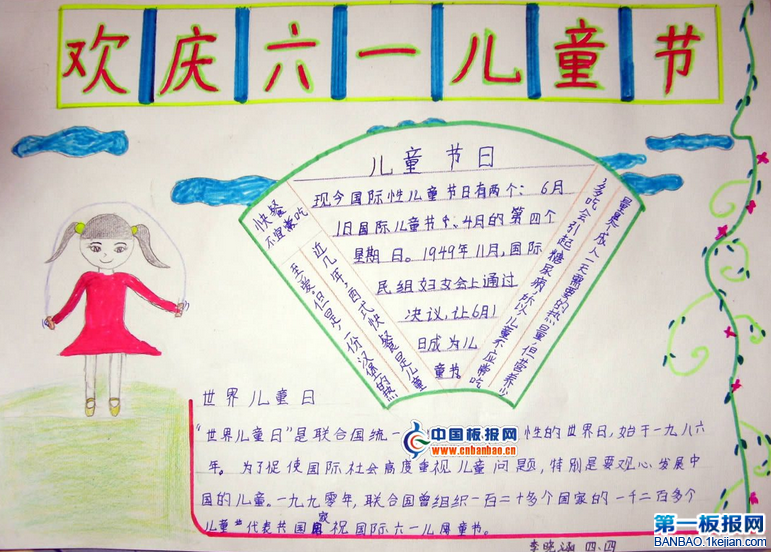 欢庆六一儿童节
儿童节日
快餐
不宜敝吃
现今国际性儿童节日有两个：6月
1日国际儿童节个、4月的第四个
星期日。1949年11月，国际
民组妇女会上通过
决议，让6月1
日成为儿
童节
近几年，西式快餐是儿童
至爱。但是，一份汉堡的热
量是个成人一天需要的热量，但营养少
多吃会引起糖尿病，所以儿童不应常吃
世界儿童日
“世界儿童日”是联合国统一
性的世界日，始于一九八六
年。为了促使国际社会高度重视儿童问题，特别是要观心发展中
国的儿童。一九九零年，联合国曾组织一百二十多个国家的一千二百多个
儿童代表共国家祝国际六一儿童节。
李晓涵 四.四
中国板报网
www.cnbanbao.cn
第一板报网
BANBAO.1kejian.com